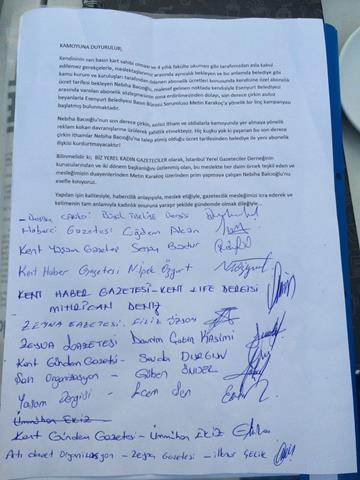 KAMOYUNA DUYURULUR;
Kendisinin sarı basın kart sahibi olması ve 4 yıllık fakülte okuması gibi tarafımızdan asla kabul
edilemez gerekçelerle, meslektaşlarımız arasında ayrıcalık bekleyen ve bu anlamda belediye gibi
kamu kurum ve kuruluşları tarafından ödenen abonelik ücretleri konusunda kendisine özel abonelik
ücret tarifesi bekleyen Nebiha Bacıoğlu, maalesef gelinen noktada kendisiyle Esenyurt Belediyesi
arasında varolan abonelik sözleşmesinin sona erdirilmesinden dolayı, son derece çirkin asılsız
beyanlarla Esenyurt Belediyesi Basın Bürosu Sorumlusu Metin Karakoç'a yönelik bir linç kampanyası
başlatmış bulunmaktadır.
Nebiha Bacıoğlu'nun son derece çirkin, asılsız itham ve iddialarla kamuoyunda yer almaya yönelik
reklam kokan davranışlarına üzülerek şahitlik etmekteyiz. Hiç kuşku yok ki yaşanan bu son derece
çirkin ithamlar Nebiha Bacıoğlu'na talep etmiş olduğu ücret tarifesinden belediye ile yeni abonelik
ilişkisi kurdurmayacaktır!
Bilinmelidir ki, BİZ YEREL KADIN GAZETECİLER olarak, İstanbul Yerel Gazeteciler Derneğinin
kurucularından ve iki dönem başkanlığını üstlenmiş olan, bu meslekte her daim örnek teşkil eden ve
mesleğimizin duayenlerinden Metin Karakoç üzerinden prim yapmaya çalışan Nebiha Balcıoğlu'nu
esefle kınıyoruz.
Yapılan işin kalitesiyle, habercilik anlayışıyla, meslek etiğiyle, gazetecilik mesleğimizi icra ederek ve
kelimenin tam anlamıyla kadınlık onuruna yaraşır şekilde gündemde olmak dileğiyle...
Haberci Gazetesi Çiğdem
Kent Yaşam Gazetesi
Kent Haber Gazetesi Nigel Özgürt
KENT HABER GAZETESİ - KENT LIFE DERGİSİ
- MİHRİCAN DENİZ
ZEYNA GAZETESİ. FİLİZ
GAZETESİ
Kent Gündem Gazetesi - Sevda DURGUN
Organizasyon - Gülben ÖNDER
Yaşam Dergisi - Ecem Şen
Ümmühan EKİZ
Kent Gündem Gazetesi - Ümmühan EKİZ
Artı davet Organizasyon - Zeyna Gazetesi - ilknur ÇELİK